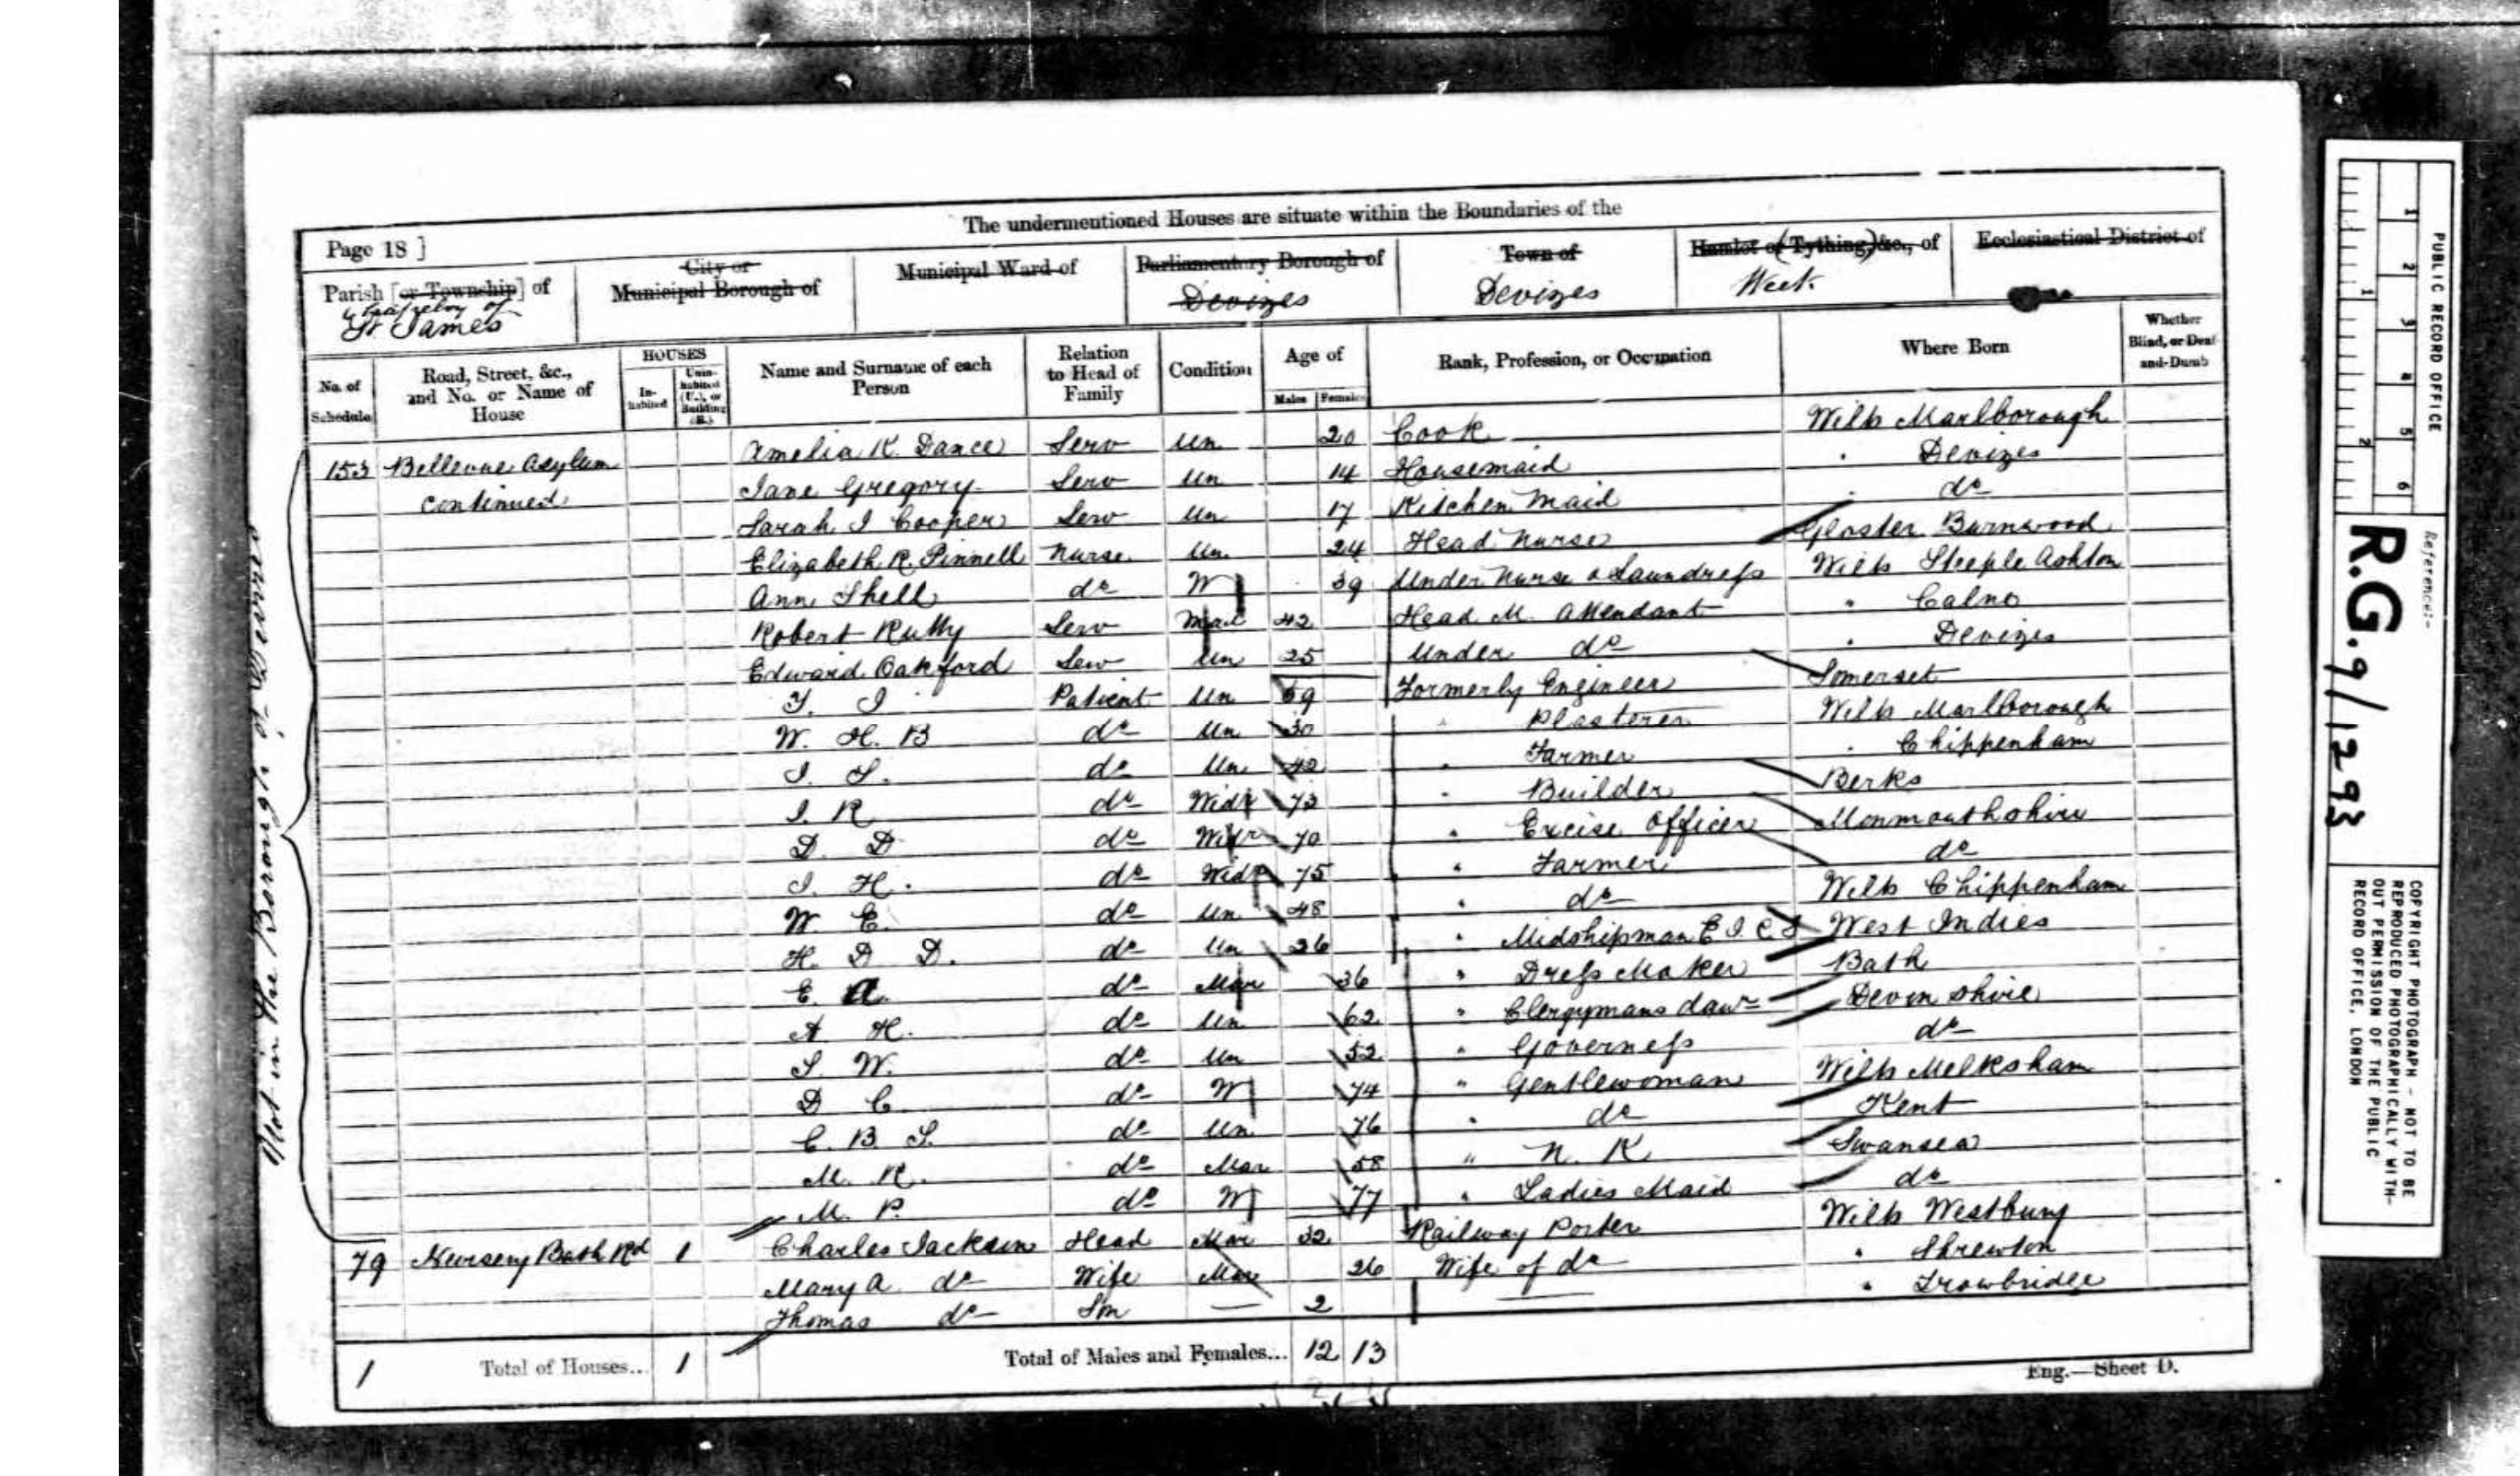 The undermentioned Houses are situate within the Boundaries of the
Page 18 ]
Parish [or Township] of
St James
City or
Municipal Borough of
Municipal Ward of
Parliamentary Borough of
Devizes
Town of
Devizes
Hamlet or (Tything,) &c., of
Week
Ecclesiastical District of
No. of Schedule
Road, Street, &c., and No. or Name of House
HOUSES
In-habited
Unin-habited (U.), or Building (B.)
Name and Surname of each Person
Relation to Head of Family
Condition
Age of
Males Females
Rank, Profession, or Occupation
Where Born
Whether Blind, or Deaf-and-Dumb
153 Bellevue Asylum Amelia K. Dance Serv Un 20 Cook Wilts Marlborough
continued Jane Gregory Serv Un 14 Housemaid " Devizes
Sarah J Cooper Serv Un 17 Kitchen Maid " do
Elizabeth R. Pinnell Nurse Un 24 Head Nurse Gloster Barnwood
Ann Shell do W 39 Under Nurse & Laundress Wilts Steeple Ashton
Robert Rutty Serv Mar 42 Head M. Attendant " Calne
Edward Oakford Serv Un 25 Under do " Devizes
Patient Un 59 Formerly Engineer Somerset
W. H. B do Un 30 " Plasterer Wilts Marlborough
J. S. do Un 42 " Farmer " Chippenham
J. R do Widr 73 " Builder Berks
D. D do Widr 70 " Excise Officer Monmouthshire
J. H. do Widr 75 " Farmer do
W. E. do Un 48 " do Wilts Chippenham
H. D D. do Un 26 " Midshipman E I C S West Indies
E. A. do Mar 36 " Dress Maker Bath
A H. do Un 62 " Clergymans daur Devonshire
S. W. do Un 52 " Governess do
D C. do W 74 " Gentlewoman Wilts Melksham
C. B S. do Un 76 " do Kent
M. R. do Mar 58 " N. K Swansea
M. P. do W 77 " Ladies Maid do
79 Nursery Bath Rd 1 Charles Jackson Head Mar 32 Railway Porter Wilts Westbury
Mary A do Wife Mar 26 Wife of do " Shrewton
Thomas do Son — 2 — " Trowbridge
1 Total of Houses... 1 Total of Males and Females... 12 13
Eng.—Sheet D.
Not in the Borough of Devizes
PUBLIC RECORD OFFICE
1 2 3 4 5 6
1 2
Reference:-
R.G. 9/1293
COPYRIGHT PHOTOGRAPH - NOT TO BE
REPRODUCED PHOTOGRAPHICALLY WITH-
OUT PERMISSION OF THE PUBLIC
RECORD OFFICE, LONDON